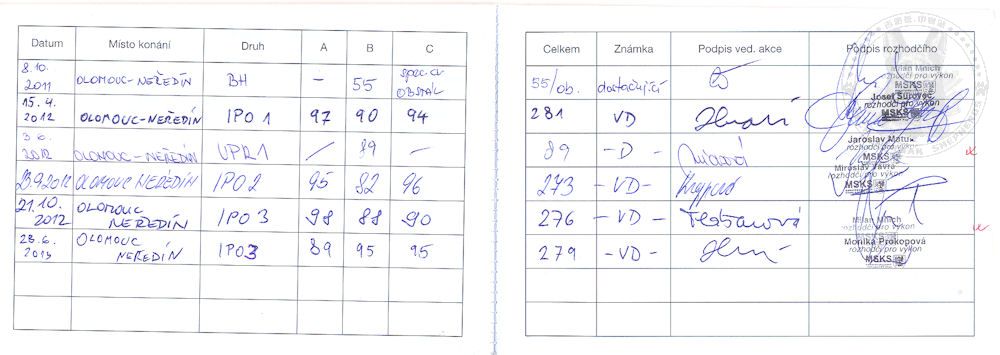 Datum Místo konání Druh A B C Celkem Známka Podpis ved. akce Podpis rozhodčího
8.10. 2011 OLOMOUC-NEŘEDÍN BH - 55 spec. cv. OBSTÁL 55/ob. dostačující
Milan Mnich
rozhodčí pro výkon
MSKS
15.4. 2012 OLOMOUC-NEŘEDÍN IPO 1 97 90 94 281 VD
Josef Surovec
rozhodčí pro výkon
MSKS
3.6. 2012 OLOMOUC-NEŘEDÍN UPR1 / 89 - 89 -D-
Jaroslav Matul
rozhodčí pro výkon
MSKS
23.9.2012 OLOMOUC NEŘEDÍN IPO 2 95 82 96 273 -VD-
Miroslav Vávra
rozhodčí pro výkon
MSKS
21.10. 2012 OLOMOUC NEŘEDÍN IPO 3 98 88 90 276 -VD-
Milan Mnich
rozhodčí pro výkon
MSKS
OLOMOUC NEŘEDÍN IPO3 89 95 95 279 -VD-
Monika Prokopová
rozhodčí pro výkon
MSKS